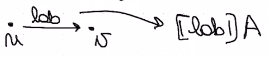 u lab v [lab]A